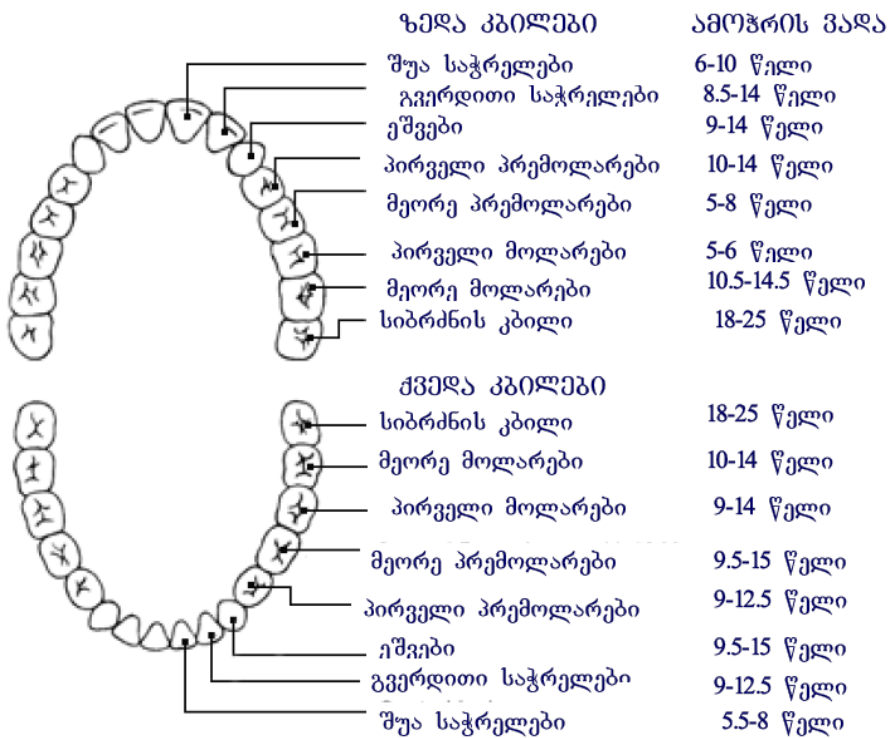 ზედა კბილები ამოჭრის ვადა
შუა საჭრელები 6-10 წელი
გვერდითი საჭრელები 8.5-14 წელი
ეშვები 9-14 წელი
პირველი პრემოლარები 10-14 წელი
მეორე პრემოლარები 5-8 წელი
პირველი მოლარები 5-6 წელი
მეორე მოლარები 10.5-14.5 წელი
სიბრძნის კბილი 18-25 წელი
ქვედა კბილები
სიბრძნის კბილი 18-25 წელი
მეორე მოლარები 10-14 წელი
პირველი მოლარები 9-14 წელი
მეორე პრემოლარები 9.5-15 წელი
პირველი პრემოლარები 9-12.5 წელი
ეშვები 9.5-15 წელი
გვერდითი საჭრელები 9-12.5 წელი
შუა საჭრელები 5.5-8 წელი